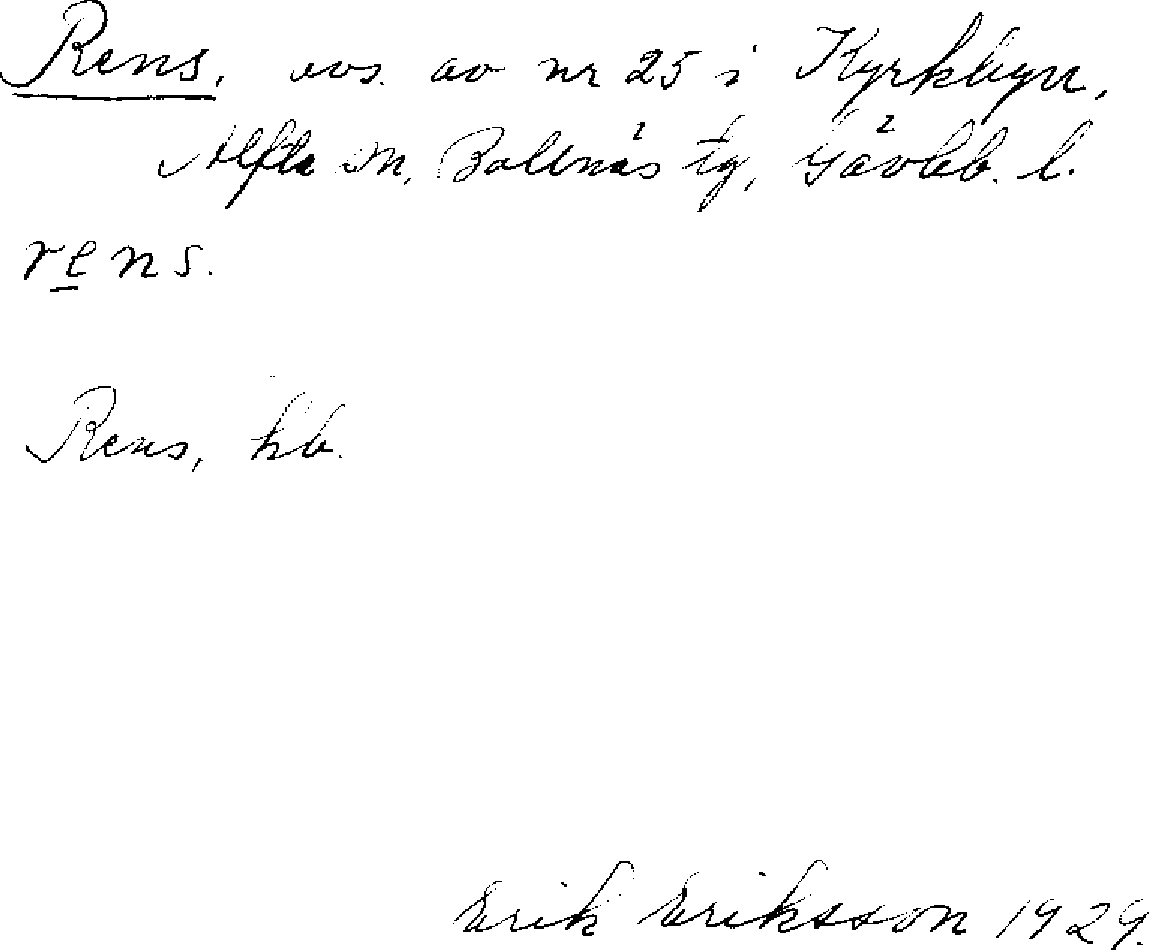 Rens, avs. av nr 25 i Kyrkbyn,
Alfta sn, Bollnäs tg, Gävleb. l.
rens.
Rens, hb.
Erik Eriksson 1929.